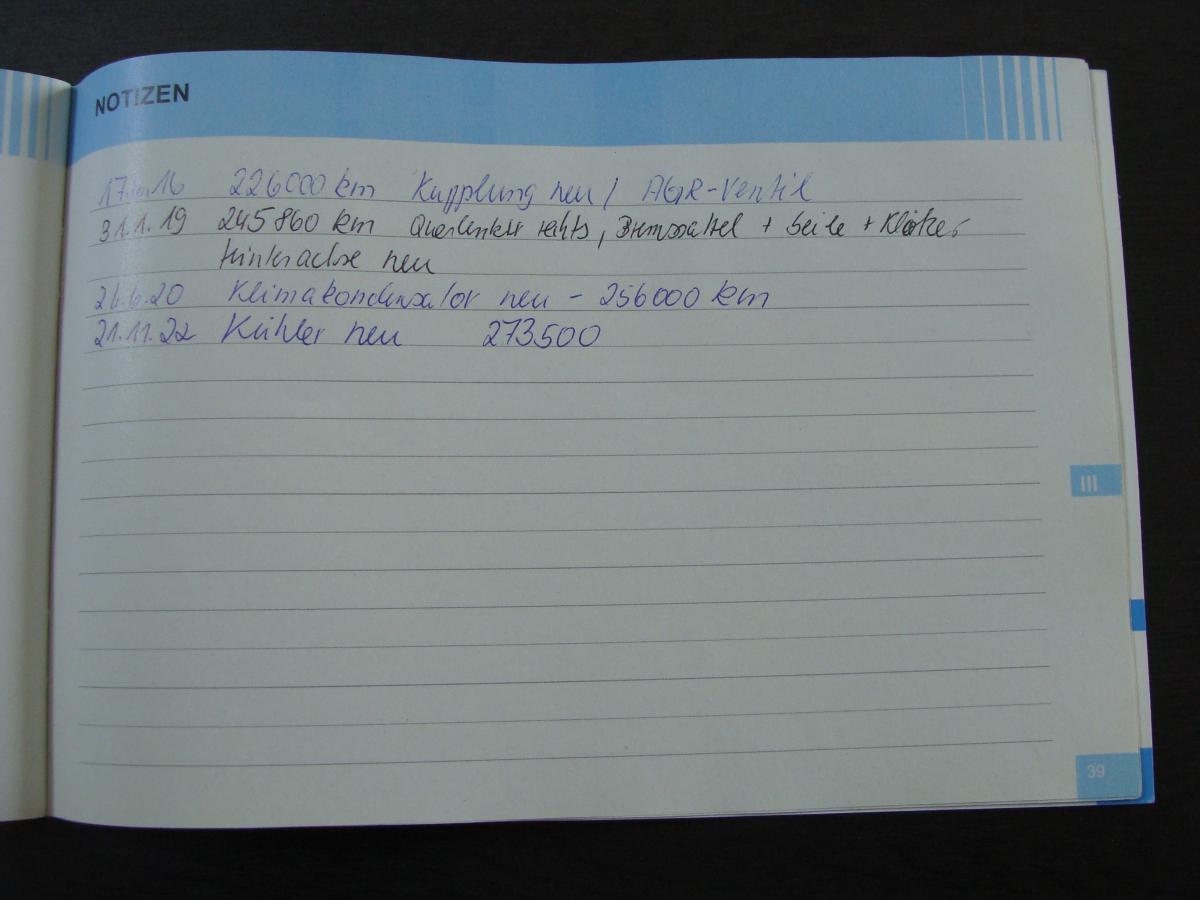 NOTIZEN
226000 km Kupplung neu / AGR-Ventil
31.1.19 245860 km Querlenker rechts, Bremssattel + Seile + Klötze
Hinterachse neu
Klimakondensator neu - 256000 km
21.11.22 Kühler neu 273500
III
39